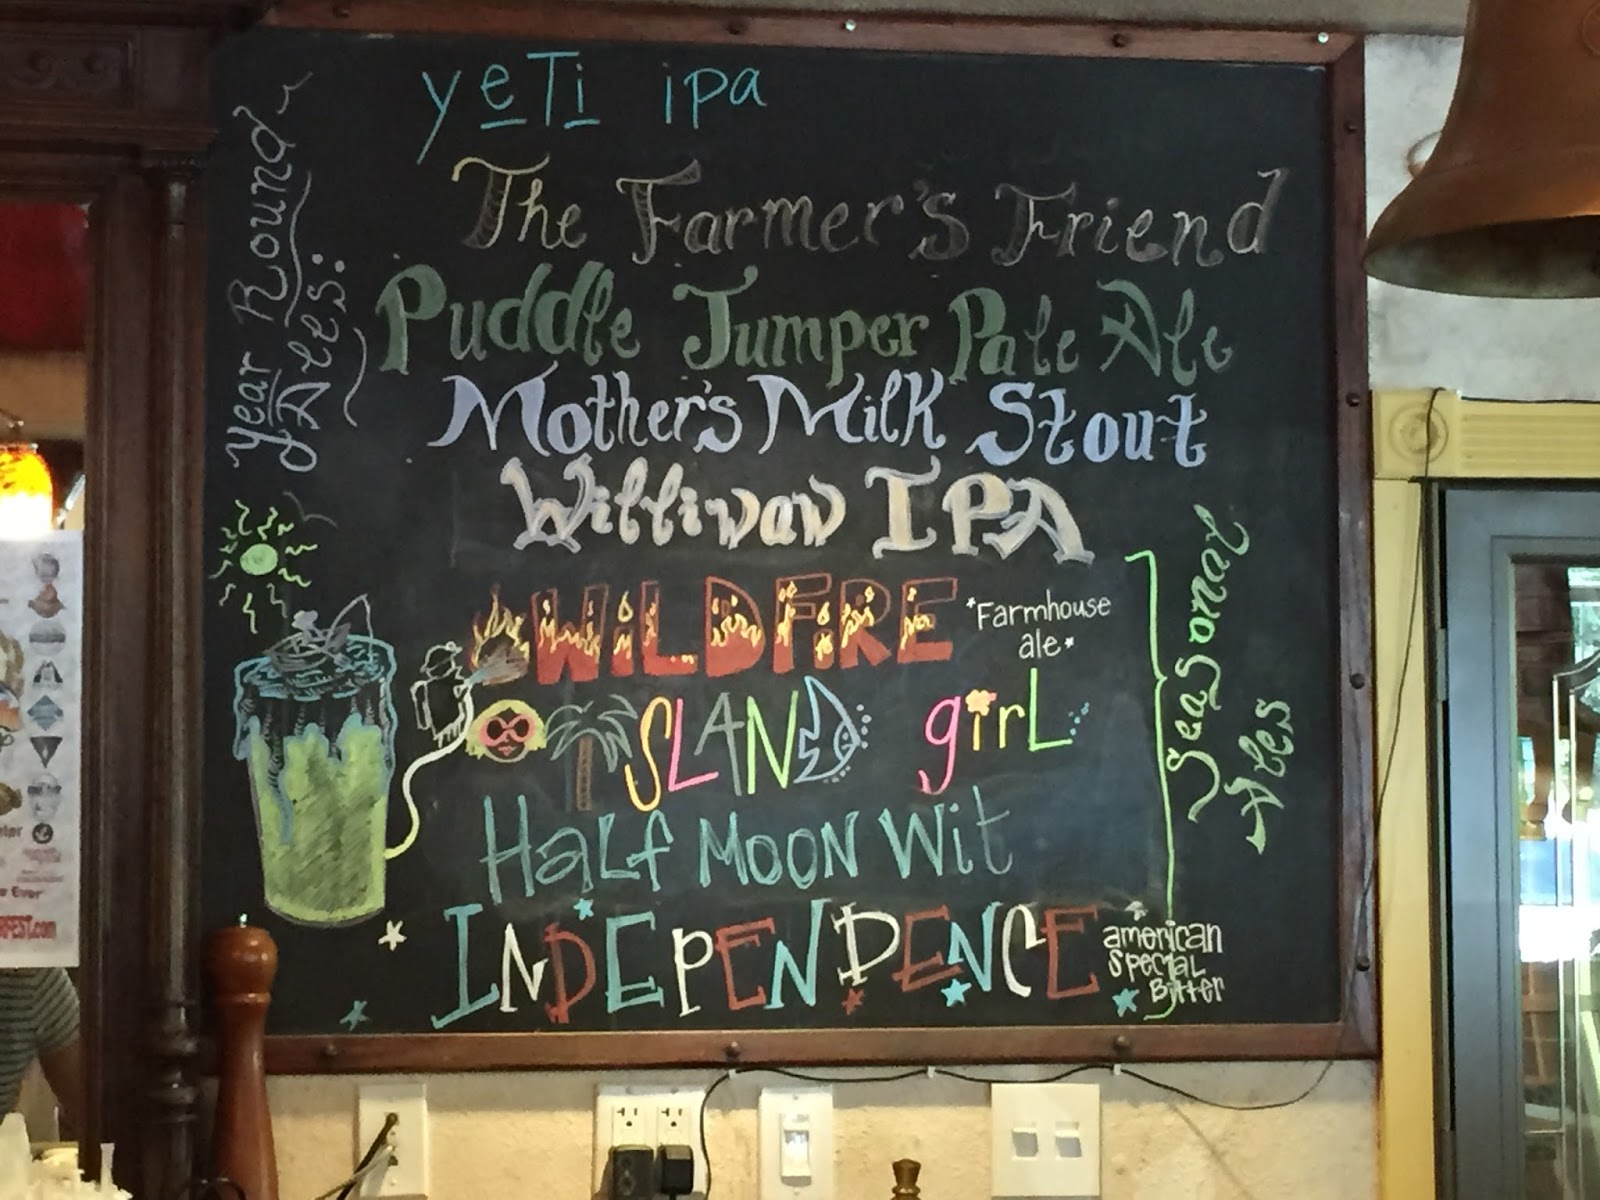 yeTi ipa
Year Round
Ales:
The Farmer's Friend
Puddle Jumper Pale Ale
Mother's Milk Stout
Williwaw IPA
WiLDFiRE
*Farmhouse
ale*
iSLAND girL
Half MOON Wit
INDEPENDENCE
american
special
Bitter
Seasonal
Ales
Ever
FEST.com